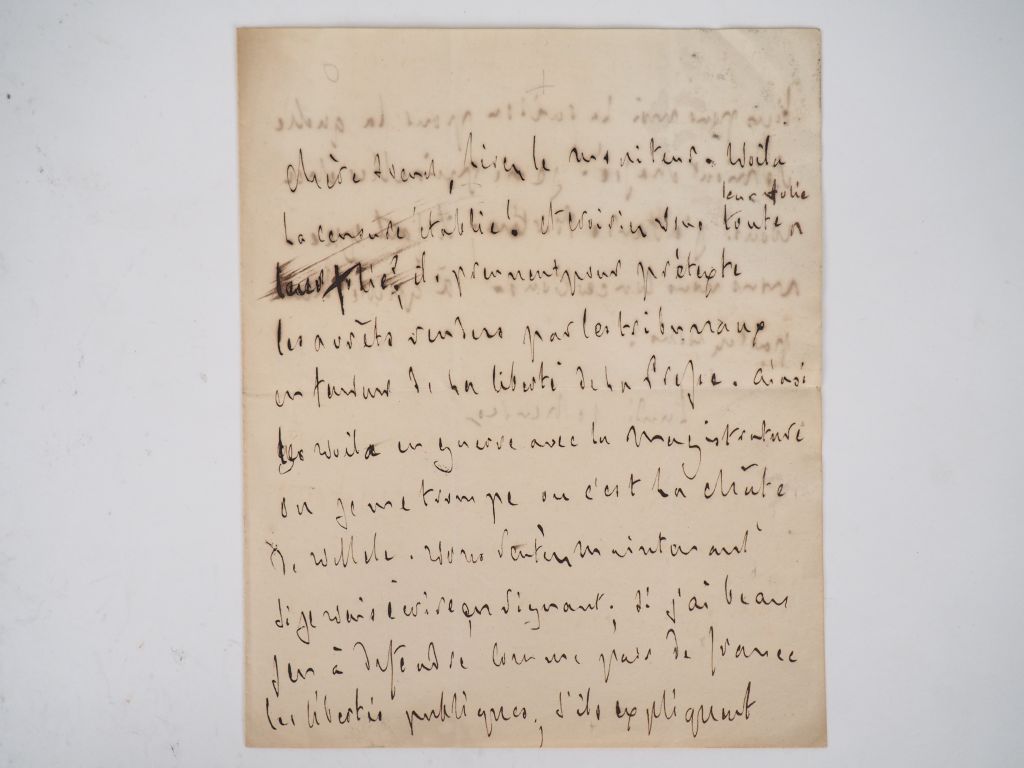 chère amie, lisez le moniteur. Voila
la censure établie! et croiriez vous toute
leur folie
leur folie? ils prennent pour prétexte
les arrêts rendus par les tribunaux
en faveur de la liberté de la Presse. ainsi
les voila en guerre avec la magistrature
ou je me trompe ou c'est la chûte
de Villele. vous sentez maintenant
si je vais écrire en signant, si j'ai beau
jeu à défendre comme pair de france
les libertés publiques, s'ils expliquent